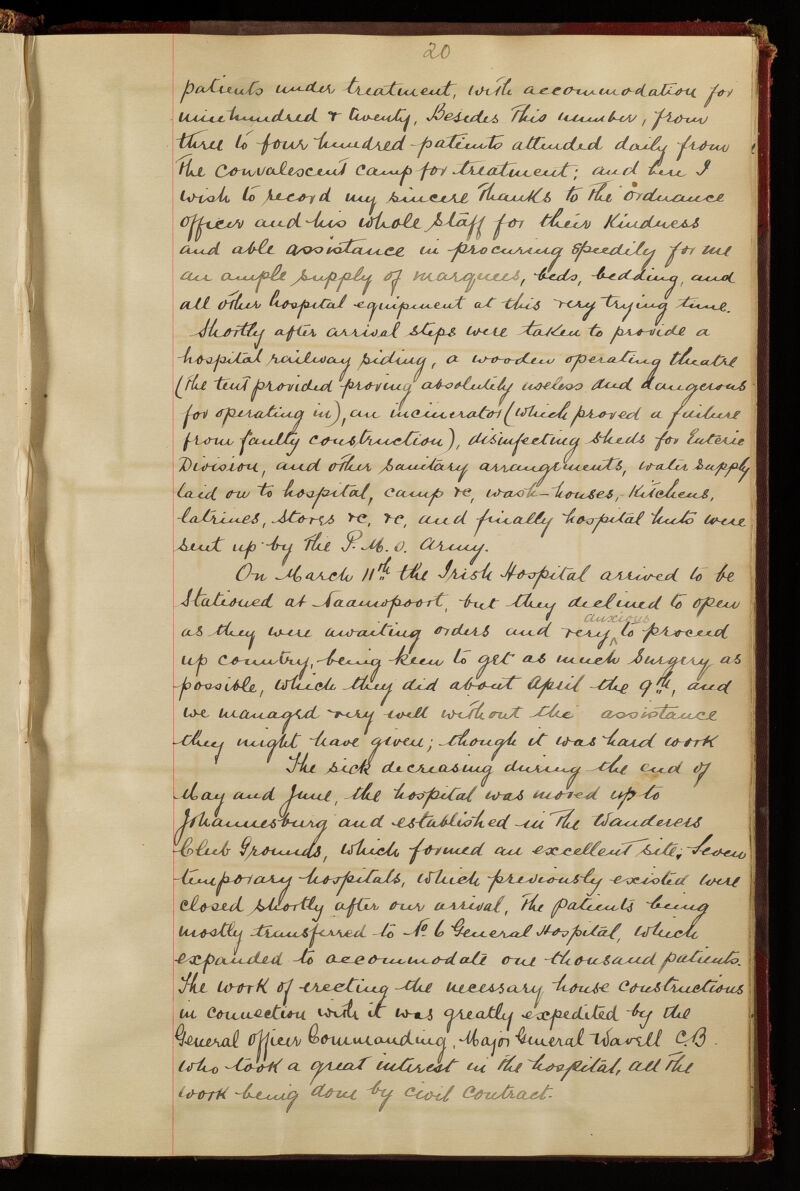 20
patients under treatment, with accommodation for
ninehundred & twenty, Besides this number, from
three to four hundred patients attended daily from
the Convalescent Camp for treatment; and here I
wish to record my sincere thanks to the Ordnance
officer and his whole Staff for their Kindness
and able assistance in procuring speedily for me
an ample supply of marquees, beds, bedding, and
all other hospital equipment at this very trying time.
Shortly after arrival steps were taken to provide a
hospital railway siding, a wooden operating theatre
(the tent provided proving absolutely useless and dangerous
for operating in), an incinerator (which proved a failure
from faulty construction), disinfecting sheds for Enteric
Division, and other Sanitary arrangements, water supply
laid on to hospital, camp &c, wash-houses, Kitchens,
latrines, Stores &c, &c, and finally hospital huts were
sent up by the P.M.O. Army.
On March 11th the Irish Hospital arrived to be
Stationed at Naauwpoort, but they declined to open
anxious
as they were awaiting orders and very to proceed
up country, being keen to get as much Surgery as
possible, which they did about April the 9th, and
we managed very well without the assistance
they might have given; though it was hard work
The sick decreasing during the end of
May and June, the hospital was moved up to
Johannesburg and established in the Wanderers
Club Grounds, which formed an excellent site, Seven
temporary hospitals, which previously existed were
closed shortly after our arrival, the patients being
mostly transferred to No 6 General Hospital, which
expanded to accommodate one thousand patients.
The work of erecting the necessary house constructions
in connection with it was greatly expedited by the
General Officer Commanding, Major General Wavell C.B.
who took a great interest in the hospital, all the
work being done by civil contract.